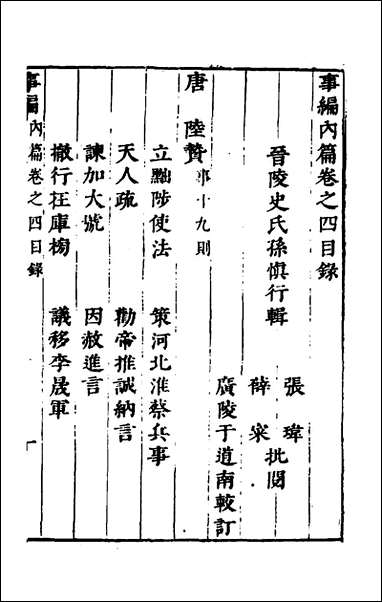 事編內篇卷之四目錄
晉陵史氏孫愼行輯
張瑋
薛寀批閱
廣陵于道南較訂
唐 陸贄 事十九則
立黜陟使法 策河北淮蔡兵事
天人疏 勸帝推誠納言
諫加大號 因赦進言
撤行在庫榜 議移李晟軍
事編 內篇卷之四目錄